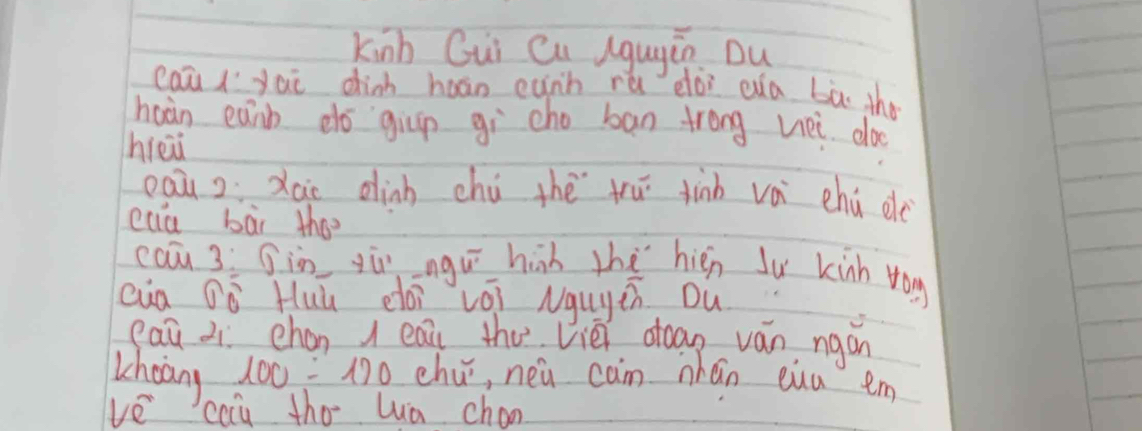 Kính Gửi Cụ Nguyễn Du
Câu 1: Xác định hoàn cảnh ra đời của bài thơ
hoàn cảnh đó giúp gì cho bạn trong việc đọc
hiểu
Câu 2: Xác định chủ thể trữ tình và chủ đề
của bài thơ
Câu 3: Tìn từ ngữ hình thể hiện sự kính trọng
của Tố Hữu đối với Nguyễn Du
Câu 4: Chọn 1 câu thơ. Viết đoạn văn ngắn
khoảng 100 - 120 chữ, nêu cảm nhận của em
về câu thơ lựa chọn